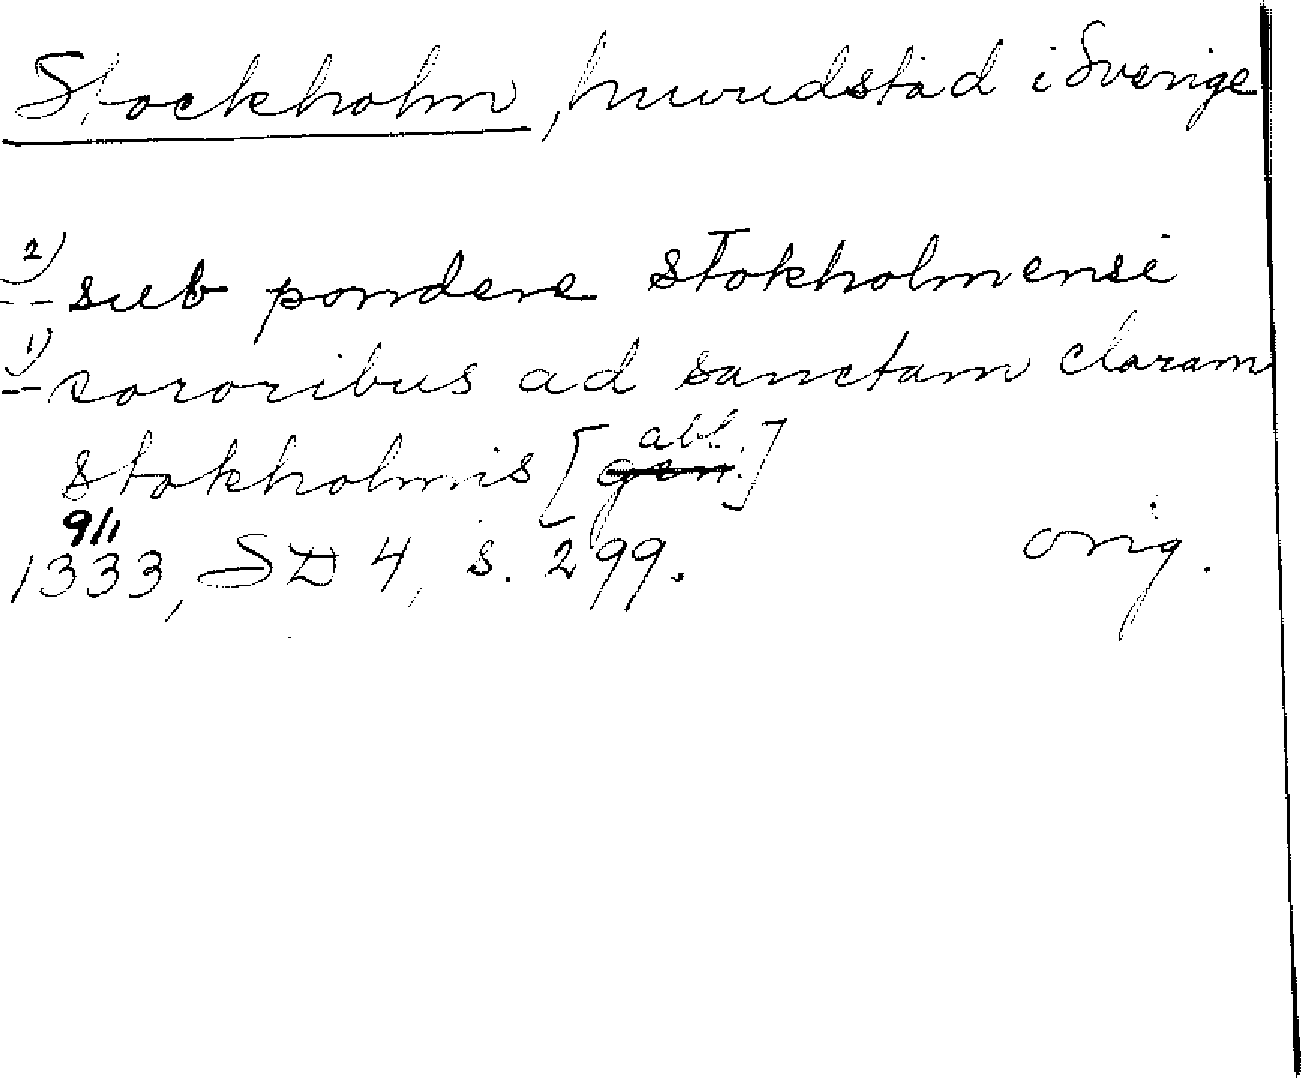 Stockholm, huvudstad i Sverige
2)
-- sub pondere stokholmensi
1)
-- sororibus ad sanctam claram
stokholmis [gen. abl.]
9/11
1333, SD 4, s. 299. orig.